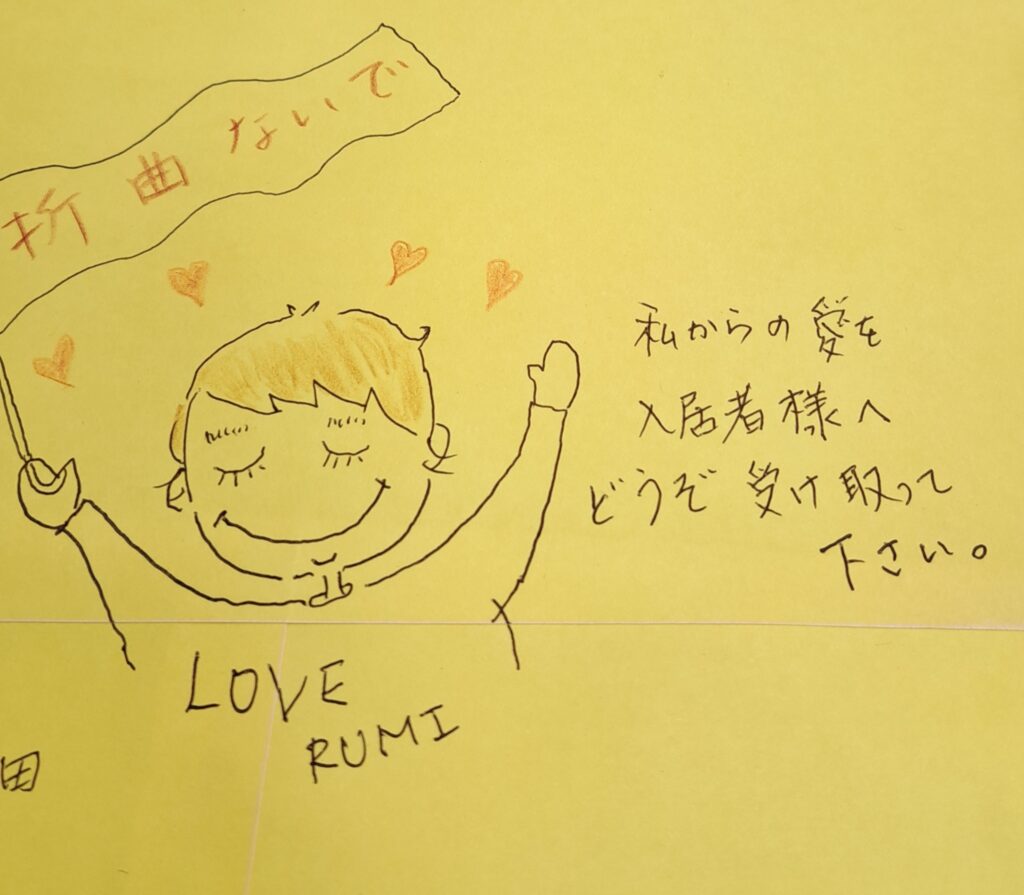 折曲ないで
私からの愛を
入居者様へ
どうぞ受け取って
下さい。
LOVE
RUMI
田